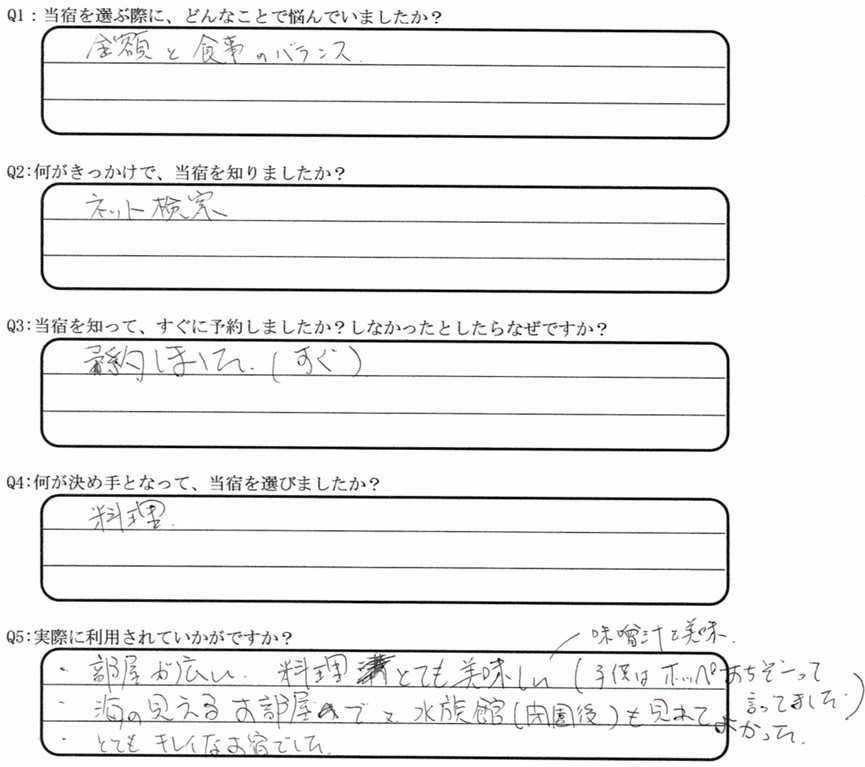 Q1：当宿を選ぶ際に、どんなことで悩んでいましたか？
金額と食事のバランス.
Q2:何がきっかけで、当宿を知りましたか？
ネット検索
Q3:当宿を知って、すぐに予約しましたか？しなかったとしたらなぜですか？
予約しました.（すぐ）
Q4:何が決め手となって、当宿を選びましたか？
料理.
Q5:実際に利用されていかがですか？
味噌汁も美味.
・部屋が広い. 料理とても美味しい（子供はホッペおちそーって
言ってました.）
・海の見えるお部屋で 水族館（閉園後）も見れてよかった.
・とてもキレイなお宿でした.